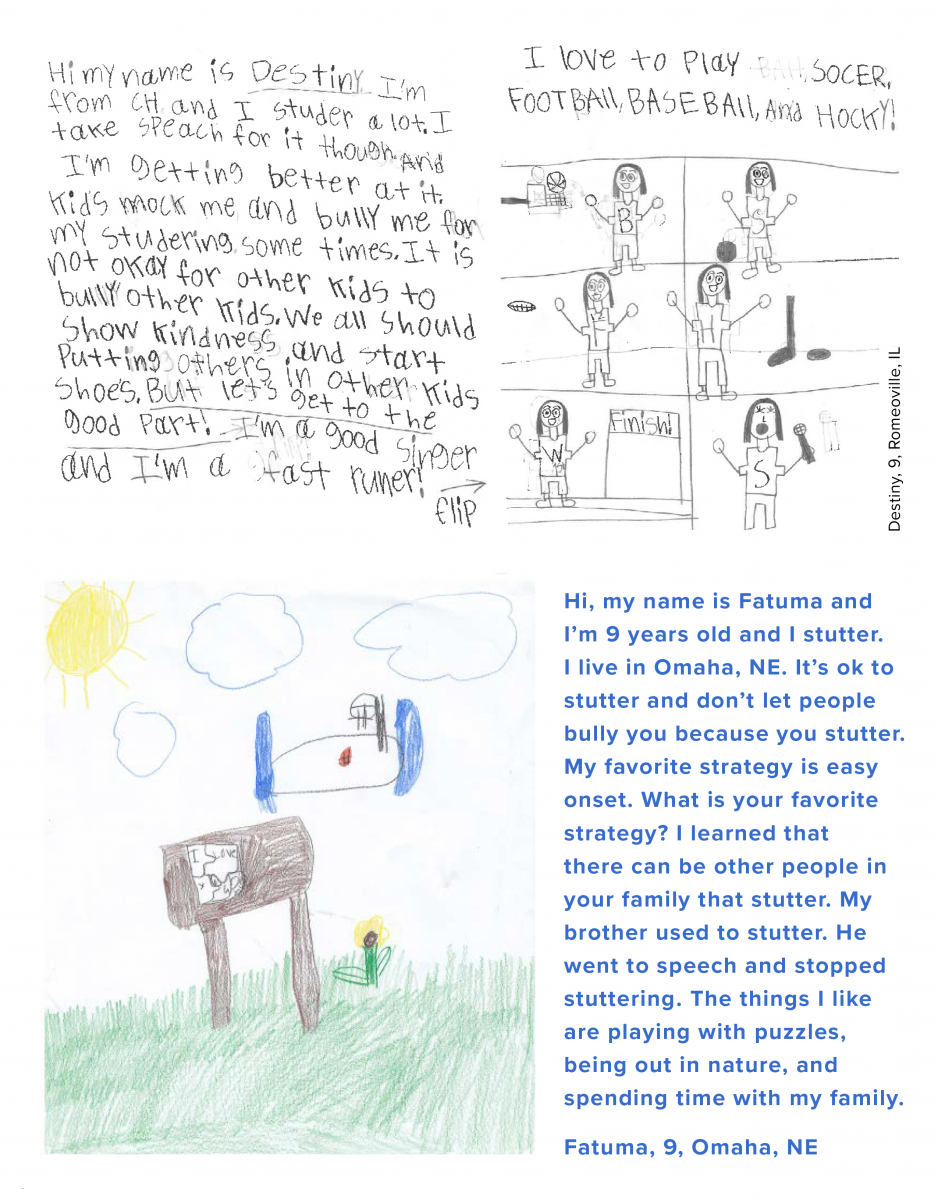 Hi my name is Destiny I'm
from CH and I studer a lot. I
take speach for it though And
I'm getting better at it.
Kids mock me and bully me for
my studering some times. It is
not okay for other kids to
bully other kids. We all should
show kindness and start
Putting others in other kids
shoes. But let's get to the
good Part! I'm a good singer
and I'm a fast runer!
flip
I love to Play BAll, SOCER,
FOOTBAll, BASEBAll, And HOCKY!
B
S
F
H
W
Finish!
S
Destiny, 9, Romeoville, IL
I Love
Hi, my name is Fatuma and
I'm 9 years old and I stutter.
I live in Omaha, NE. It's ok to
stutter and don't let people
bully you because you stutter.
My favorite strategy is easy
onset. What is your favorite
strategy? I learned that
there can be other people in
your family that stutter. My
brother used to stutter. He
went to speech and stopped
stuttering. The things I like
are playing with puzzles,
being out in nature, and
spending time with my family.
Fatuma, 9, Omaha, NE